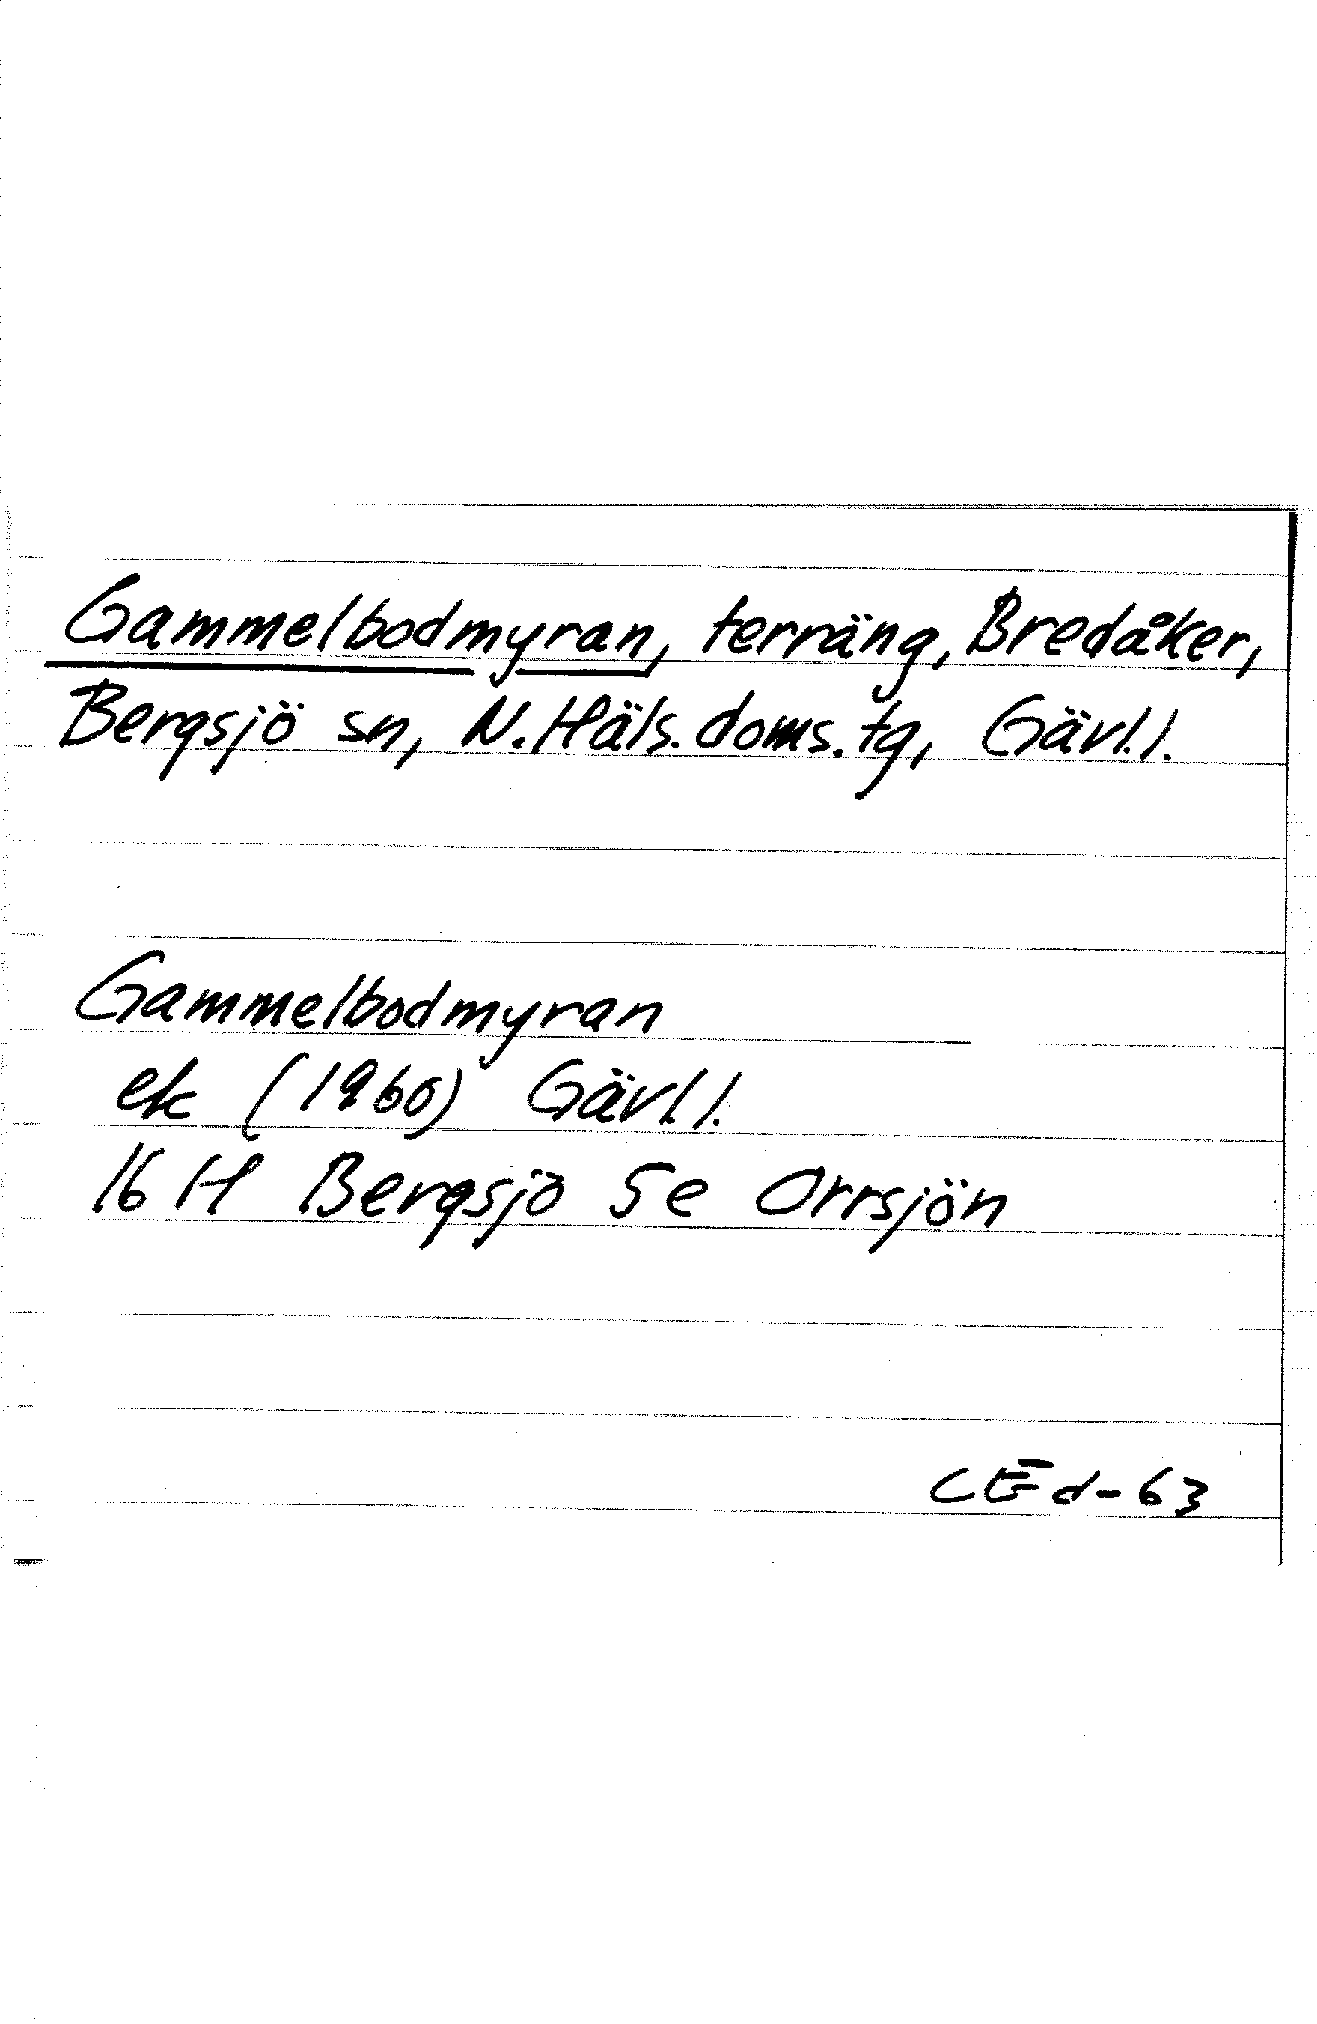 Gammelbodmyran, terräng, Bredåker,
Bergsjö sn, N. Häls. doms. tg, Gävl. l.
Gammelbodmyran
ek (1960) Gävl. l.
16 H Bergsjö 5e Orrsjön
CEd-63